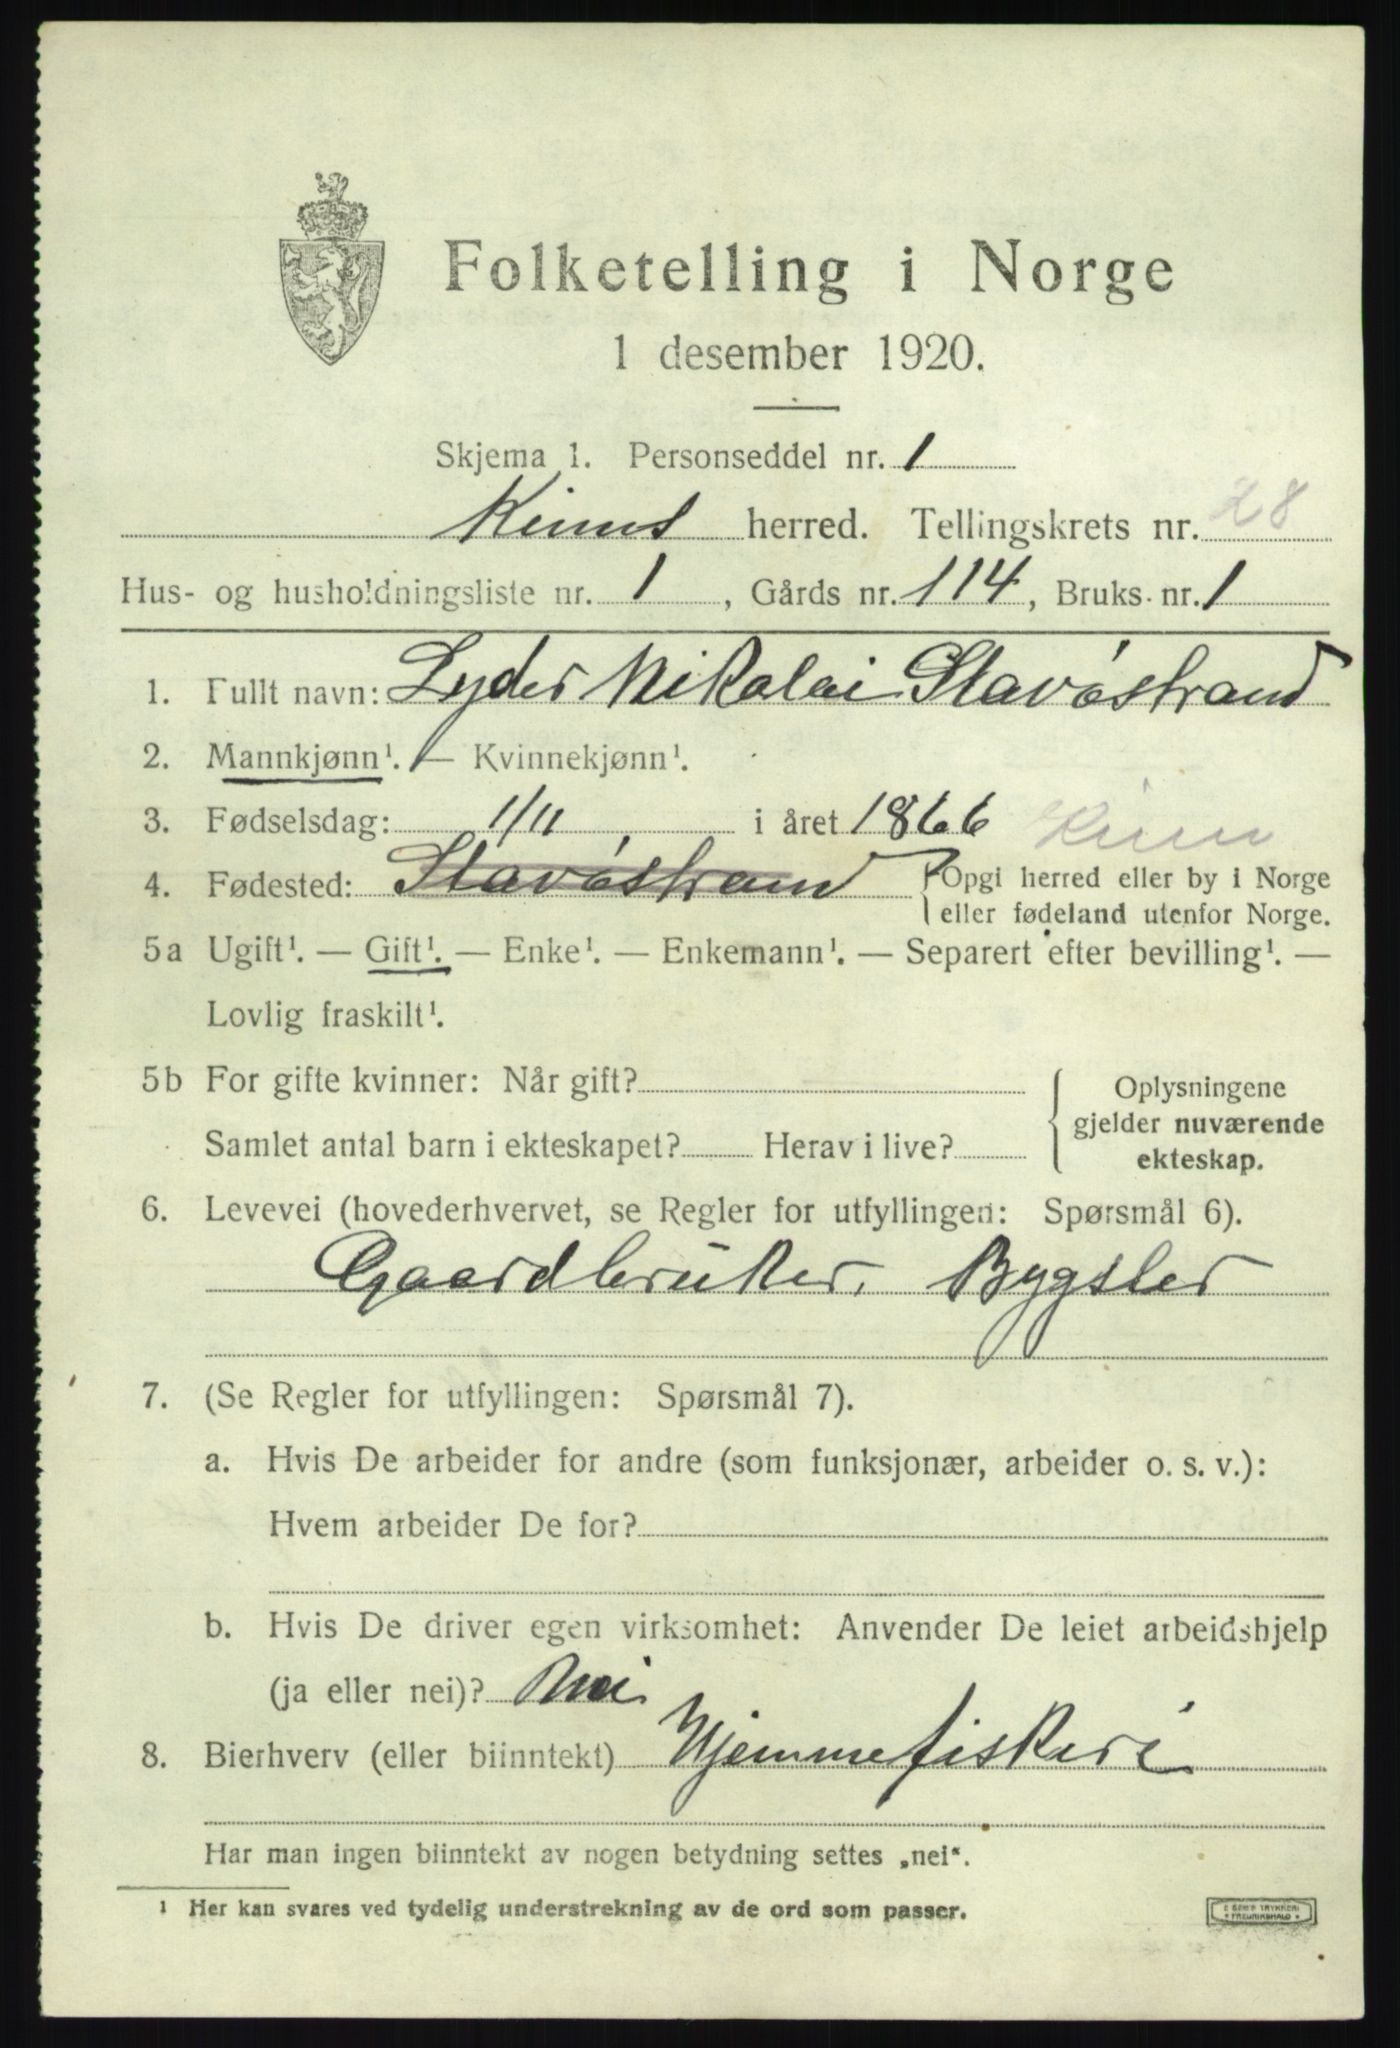 Folketelling i Norge
1 desember 1920.
Skjema 1. Personseddel nr. 1
Kinns herred. Tellingskrets nr. 28
Hus- og husholdningsliste nr. 1, Gårds nr. 114, Bruks nr. 1
1. Fullt navn: Lyder Nikolai Stavøstrand
2. Mannkjønn¹. — Kvinnekjønn¹.
3. Fødselsdag: 1/11 i året 1866 Kinn
4. Fødested: Stavøstrand { Opgi herred eller by i Norge
eller fødeland utenfor Norge.
5a Ugift¹. — Gift¹. — Enke¹. — Enkemann¹. — Separert efter bevilling¹. —
Lovlig fraskilt¹.
5b For gifte kvinner: Når gift?
Samlet antal barn i ekteskapet? Herav i live?
{ Oplysningene
gjelder nuværende
ekteskap.
6. Levevei (hovederhvervet, se Regler for utfyllingen: Spørsmål 6).
Gaardbruker. Bygsler
7. (Se Regler for utfyllingen: Spørsmål 7).
a. Hvis De arbeider for andre (som funksjonær, arbeider o. s. v.):
Hvem arbeider De for?
b. Hvis De driver egen virksomhet: Anvender De leiet arbeidshjelp
(ja eller nei)? Nei
8. Bierhverv (eller biinntekt) Hjemmefiskeri
Har man ingen biinntekt av nogen betydning settes „nei".
1 Her kan svares ved tydelig understrekning av de ord som passer.